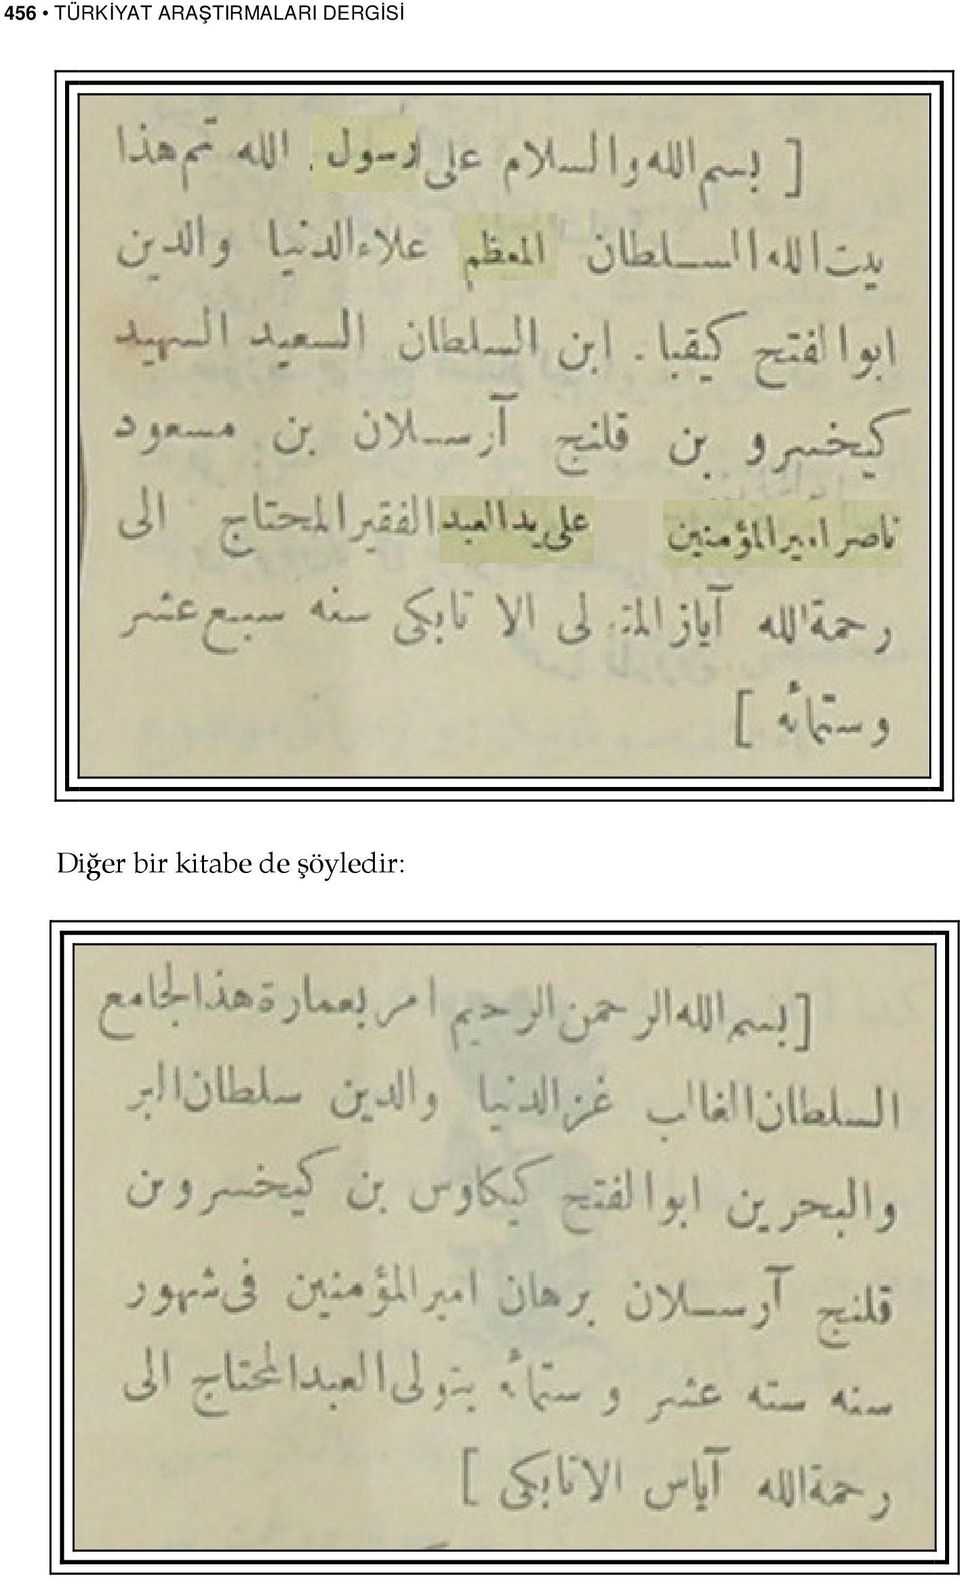 456 • TÜRKİYAT ARAŞTIRMALARI DERGİSİ
[ بسم الله والسلام على رسول الله تم هذا
بيت الله السلطان المعظم علاء الدنيا والدين
ابو الفتح كيقبا. ابن السلطان السعيد السهيد
كيخسرو بن قلنج آرسلان بن مسعود
ناصر امير المؤمنين على يد العبد الفقير المحتاج الى
رحمة الله آياز المتولى الا تابكى سنه سبع عشر
وستمائه ]
Diğer bir kitabe de şöyledir:
[بسم الله الرحمن الرحيم امر بعمارة هذا الجامع
السلطان الغالب عز الدنيا والدين سلطان البر
والبحرين ابو الفتح كيكاوس بن كيخسرو بن
قلنج آرسلان برهان امير المؤمنين فى شهور
سنه سته عشر و ستمائه بتولى العبد المحتاج الى
رحمة الله آياس الاتابكى ]